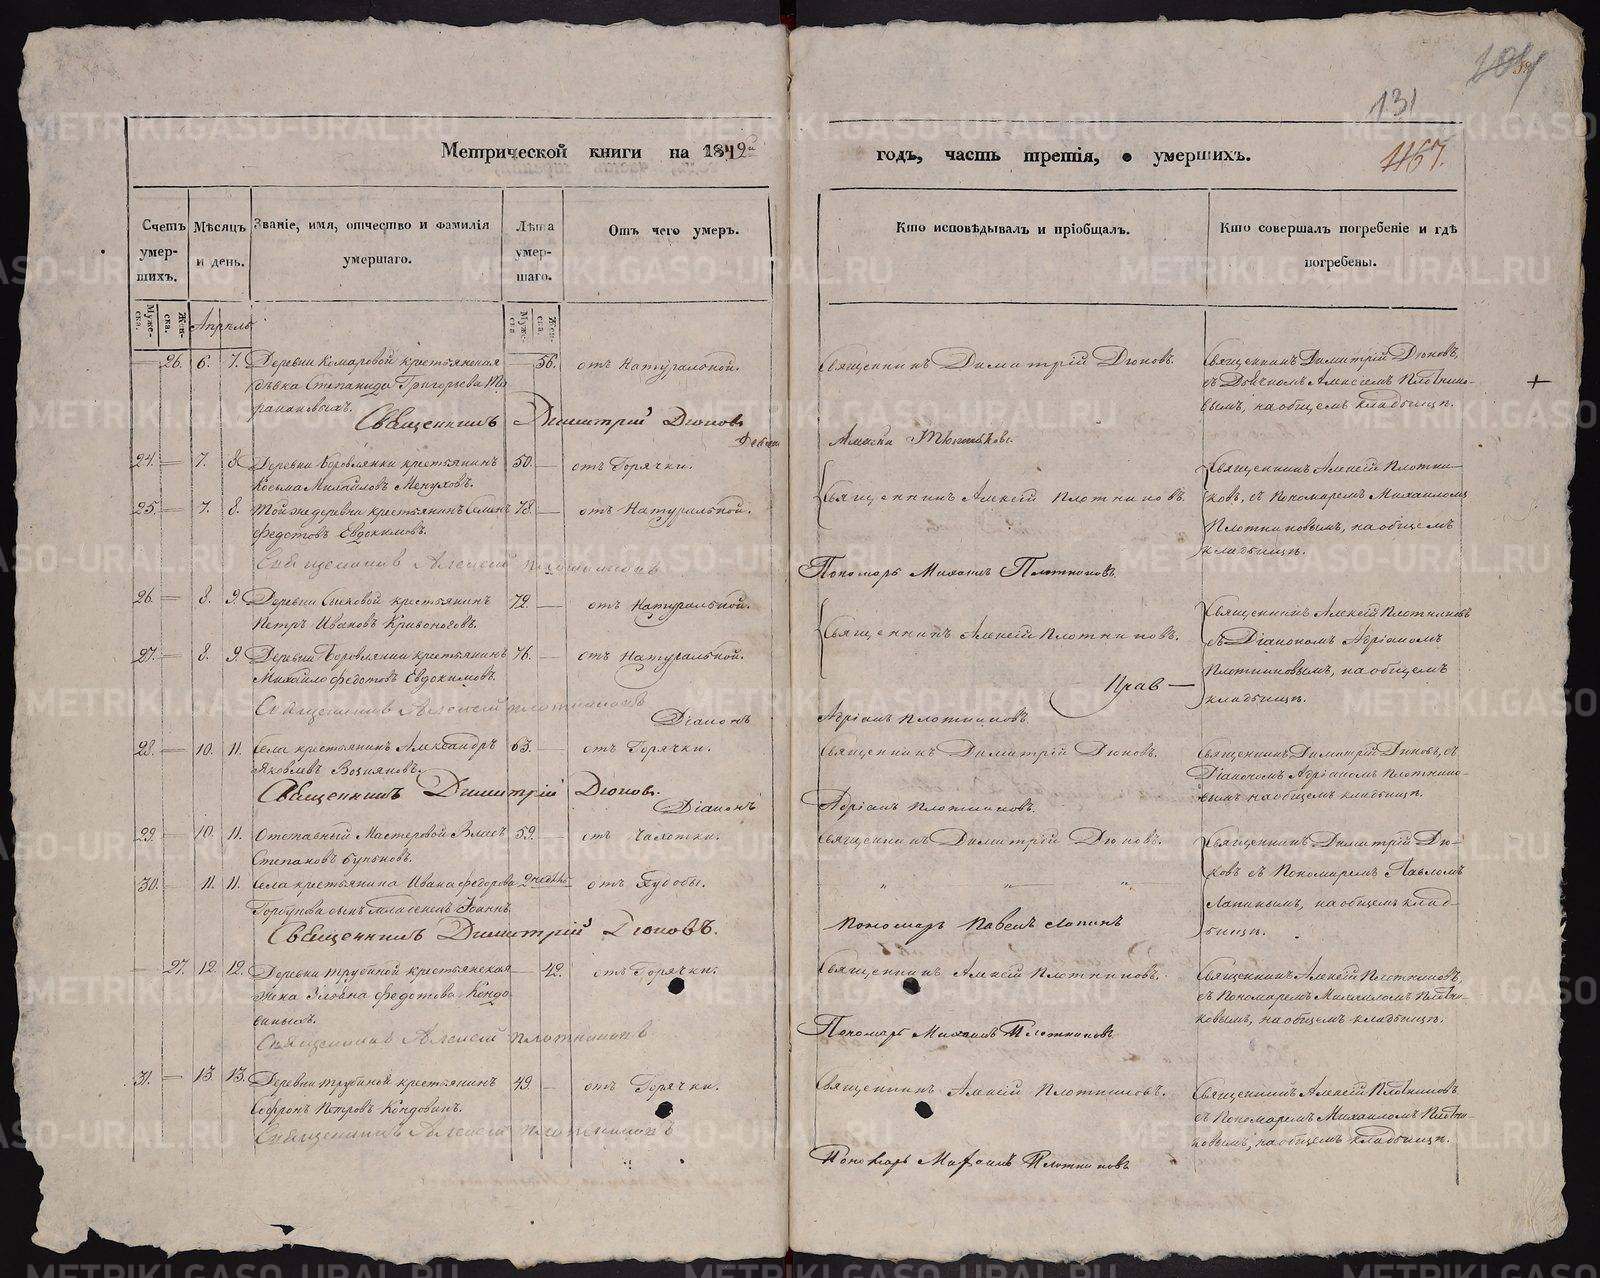 131
467.
Метрической книги на 1849й
годъ, часть третія, о умершихъ.
Счетъ умер-шихъ.
Мѣсяцъ и день.
Званіе, имя, отчество и фамилія умершаго.
Лѣта умер-шаго.
Отъ чего умеръ.
Кто исповѣдывалъ и пріобщалъ.
Кто совершалъ погребеніе и гдѣ погребены.
Муже-ска.
Жен-ска.
Апрель
Муже-ска
Жен-ска.
— 26. 6. 7. Деревни Комаровой крестьянская — 56. отъ Натуральной. Священникъ Димитрій Дюковъ. Священникъ Димитрій Дюковъ,
дѣвка Степанида Григорьева съ Алексѣемъ Плотнико-
вымъ, на общемъ кладбищѣ.
Священникъ Димитрій Дюковъ
24. — 7. 8. Деревни Боровлянки крестьянинъ 50. — отъ Горячки. Священникъ Алексѣй Плотни-
Козьма Михайловъ ковъ, съ Пономаремъ Михаиломъ
Священникъ Алексѣй Плотниковъ.
25. — 7. 8. Той же деревни крестьянинъ Семенъ 78 — отъ Натуральной. Плотниковымъ, на общемъ
Федотовъ Евдокимовъ. кладбищѣ.
Священникъ Алексѣй Плотниковъ
Пономарь Михаилъ Плотниковъ
26. — 8. 9. Деревни Быковой крестьянинъ 72. — отъ Натуральной. Священникъ Алексѣй Плотниковъ
Петръ Ивановъ Кривоноговъ. Священникъ Алексѣй Плотниковъ. съ Діакономъ Адріаномъ
27. — 8. 9. Деревни Боровлянки крестьянинъ 76. — отъ Натуральной. Плотниковымъ, на общемъ
Михайло Федотовъ Евдокимовъ. кладбищѣ.
Священникъ Алексѣй Плотниковъ
Діаконъ Адріанъ Плотниковъ
28. — 10. 11. Села крестьянинъ Александръ 63. — отъ Горячки. Священникъ Димитрій Дюковъ. Священникъ Димитрій Дюковъ, съ
Яковлевъ Діакономъ Адріаномъ Плотнико-
вымъ на общемъ кладбищѣ.
Священникъ Димитрій Дюковъ.
Діаконъ Адріанъ Плотниковъ.
29. — 10. 11. Отставный Мастеровой Власъ 59. — отъ Чахотки. Священникъ Димитрій Дюковъ. Священникъ Димитрій Дю-
Степановъ ковъ съ Пономаремъ Павломъ
30. — 11. 11. Села крестьянина Ивана Федорова 2 недѣль отъ Худобы. „ — „ Лапинымъ, на общемъ клад-
Горбунова сынъ младенецъ Іоаннъ. бищѣ.
Священникъ Димитрій Дюковъ.
Пономарь Павелъ Лапинъ
— 27. 12. 12. Деревни Трубиной крестьянская — 42. отъ Горячки. Священникъ Алексѣй Плотниковъ. Священникъ Алексѣй Плотниковъ,
жена Федотова Кондо- съ Пономаремъ Михаиломъ Плотни-
виныхъ. ковымъ, на общемъ кладбищѣ.
Священникъ Алексѣй Плотниковъ
Пономарь Михаилъ Плотниковъ
31. — 13. 13. Деревни Трубиной крестьянинъ 49. — отъ Горячки. Священникъ Алексѣй Плотниковъ. Священникъ Алексѣй Плотниковъ
Софронъ Петровъ Кондовинъ. съ Пономаремъ Михаиломъ Плотни-
ковымъ, на общемъ кладбищѣ.
Священникъ Алексѣй Плотниковъ
Пономарь Михаилъ Плотниковъ
METRIKI.GASO-URAL.RU